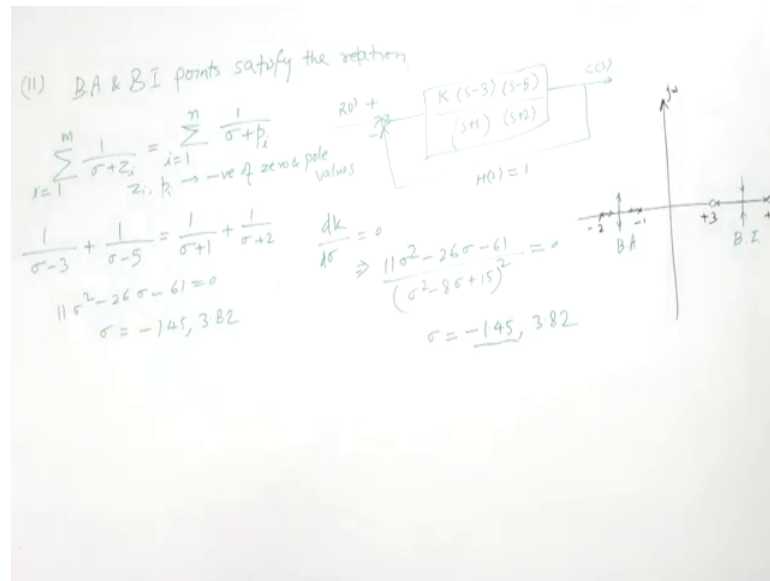 (11) BA & BI points satisfy the relation.
m n
∑ 1/(σ+zᵢ) = ∑ 1/(σ+pᵢ)
i=1 i=1
zᵢ, pᵢ → -ve of zero & pole
values
1/(σ-3) + 1/(σ-5) = 1/(σ+1) + 1/(σ+2)
11σ²-26σ-61=0
σ = -1.45, 3.82
R(s) +
-
K (s-3) (s-5)
(s+1) (s+2)
C(s)
H(s) = 1
dk/dσ = 0
⇒ (11σ²-26σ-61)/(σ²-8σ+15)² = 0
σ = -1.45, 3.82
jω
-2 -1 +3
B.A B.I